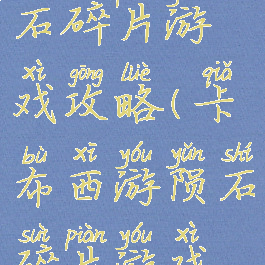 石碎片游
xì gōng lüè qiǎ
戏攻略(卡
bù xī yóu yǔn shí
布西游陨石
suì piàn yóu xì
碎片游戏